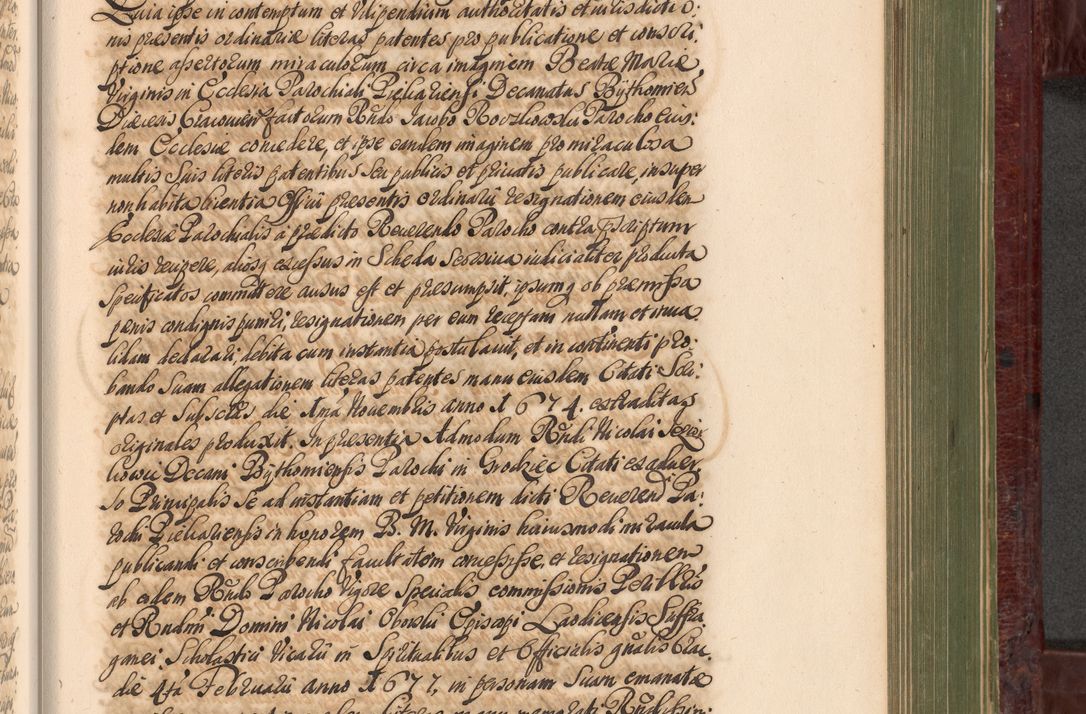 Quia ipse in contemptum et vilipendium authoritatis et iurisdictio:
nis præsentis ordinariæ literas patentes pro publicatione et conscri:
ptione assertorum miraculorum circa imaginem Beatæ Mariæ
Virginis in Ecclesia Parochiali Piekariensi Decanatus Bythomien
Diæcesis Cracovien factorum Rndo Jacobo Roczkowski Parocho eius:
dem Ecclesiæ concedere, et ipse eandem imaginem pro miraculosa
multis suis literis patentibus seu publicis et privatis publicare, insuper
non habita licentia Officii præsentis ordinarii resignationem eiusdem
Ecclesiæ Parochialis a prædicto Reverendo Parocho contra præscriptum
iuris recipere, aliosq excessus in Scheda Seorsiva iudicialiter producta
specificatos committere ausus est et præsumpsit, ipsumq ob præmissa
pænis condignis puniri, resignationem per eum receptam nullam et inva:
lidam declarari, debita cum instantia postulavit, et in continenti pro:
bando suam allegationem literas patentes manu eiusdem Citati Scri:
ptas et subscrtas die 1ma Novembris anno 1674. extraditas
originales produxit. In præsentia Admodum Rndi Nicolai
Decani Bythomiensis Parochi in Grodziec Citati ex adver
so Principalis se ad instantiam et petitionem dicti Reverendi Pa:
rochi Piekariensis in honorem B. M. Virginis huiusmodi miracula
publicandi et conscribendi facultatem concessisse, et resignationem
ab eodem Rndo Parocho vigore specialis commissionis Perillris
et Rndmi Domini Nicolai Oborski Episcopi Laodicensis Suffra
ganei Scholastici Vicarii in Spiritualibus et Officialis gnalis Crac.
die 4ta Februarii anno 1677, in personam suam emanatæ